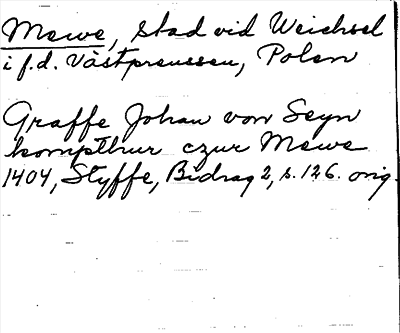 Mewe, stad vid Weichsel
i f.d. Västpreussen, Polen
Graffe Johan von Seyn
kompthur czur Mewe
1404, Styffe, Bidrag 2, s. 126. orig.